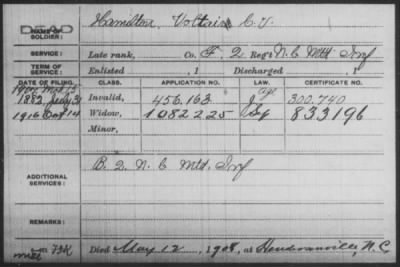 DEAD
NAME OF SOLDIER: Hamilton, Voltair C. V.
SERVICE: Late rank, Co. F, 2 Reg't N.C. Mtd Inf
TERM OF SERVICE: Enlisted , 1 Discharged , 1
DATE OF FILING. CLASS. APPLICATION NO. LAW. CERTIFICATE NO.
1882 July 31 Invalid, 456.163 300.740
1916 Oct 14 Widow, 1082225 833196
Minor,
ADDITIONAL SERVICES: B. 2. N. C. Mtd. Inf
REMARKS:
Died May 12, 1908, at Hendersonville, N.C.